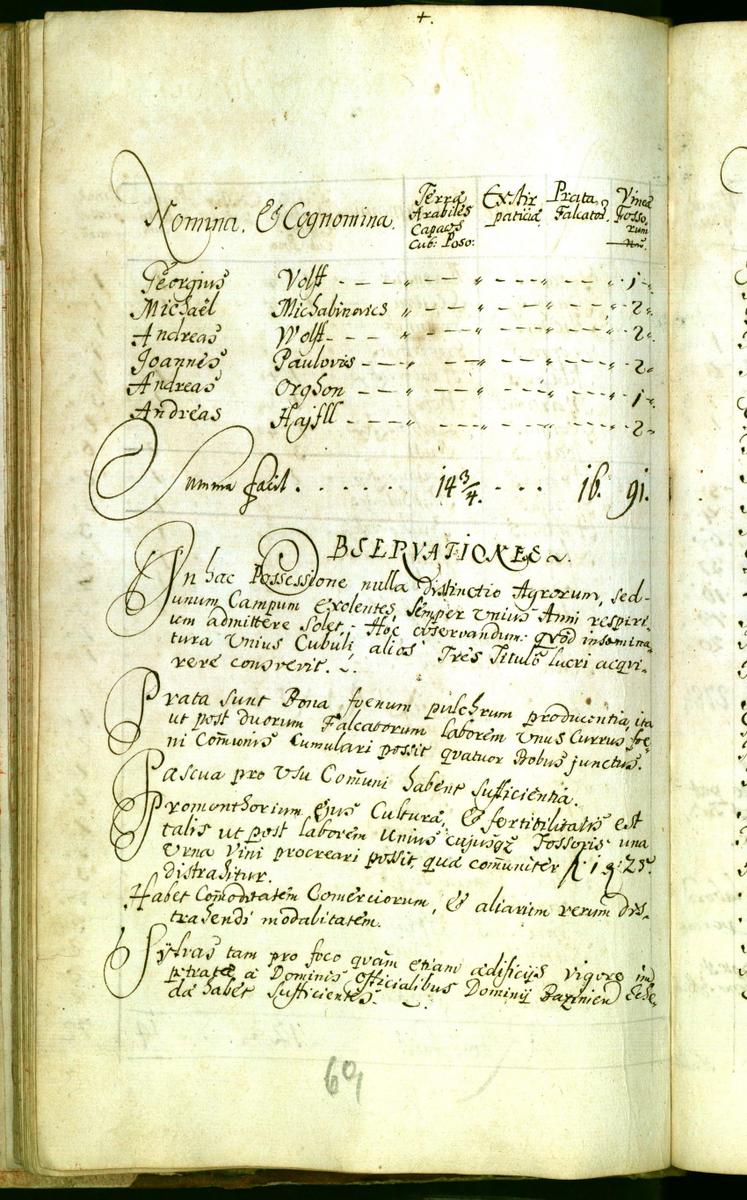 +.
Nomina, & Cognomina. Terræ Arabiles Capaces Cub: Poso: Extir patitiæ Prata Falcator. Vineæ Fosso, rum
Georgius Volff - - - „ - - - „ - - - „ - - - „ - 1 „
Michaël Michabinovics „ - - - „ - - - „ - - - „ - 2 „
Andreas Wolff - - - „ - - - „ - - - „ - - - „ - 2 „
Joannes Paulovis - - - „ - - - „ - - - „ - - - „ - 2 „
Andreas Orghon - - - „ - - - „ - - - „ - - - „ - 1 „
Andreas Hajfll - - - „ - - - „ - - - „ - - - „ - 2 „
Summa facit . . . . . . 14 3/4. . . . 16. 91.
OBSERVATIONES
In hac Possessione nulla distinctio Agrorum, sed-
unum Campum exolentes, semper Unius Anni respiri-
um admittere solet,- Hoc observandum: quod insemina-
tura Unius Cubuli, alios Tres Titulo lucri acqui-
rere consvevit.
Prata sunt Bona foenum pulchrum producentia, ita
ut post duorum Falcatorum laborem Unus Currus foe-
ni Com̃unis Cumulari possit quatuor Bobus junctus.
Pascua pro Usu Com̃uni habent sufficientia.
Promonthorium ejus Culturæ, & fertilitatis est
talis ut post laborem Unius cujusq; Fossoris una
Urna Vini procreari possit, quæ com̃uniter f. 1 d: 25.
distrahitur.
Habet Com̃oditatem Comerciorum, & aliarum rerum dis-
trahendi modalitatem.
Sylvas tam pro foco quam etiam ædificijs vigore im
petratæ à Dominis Officialibus Dominij Baziniens Sche-
dæ habet sufficientes.
69